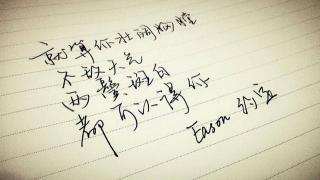 就算你壮阔胸膛
不敌天气
两鬓斑白
都可认得你
Eason